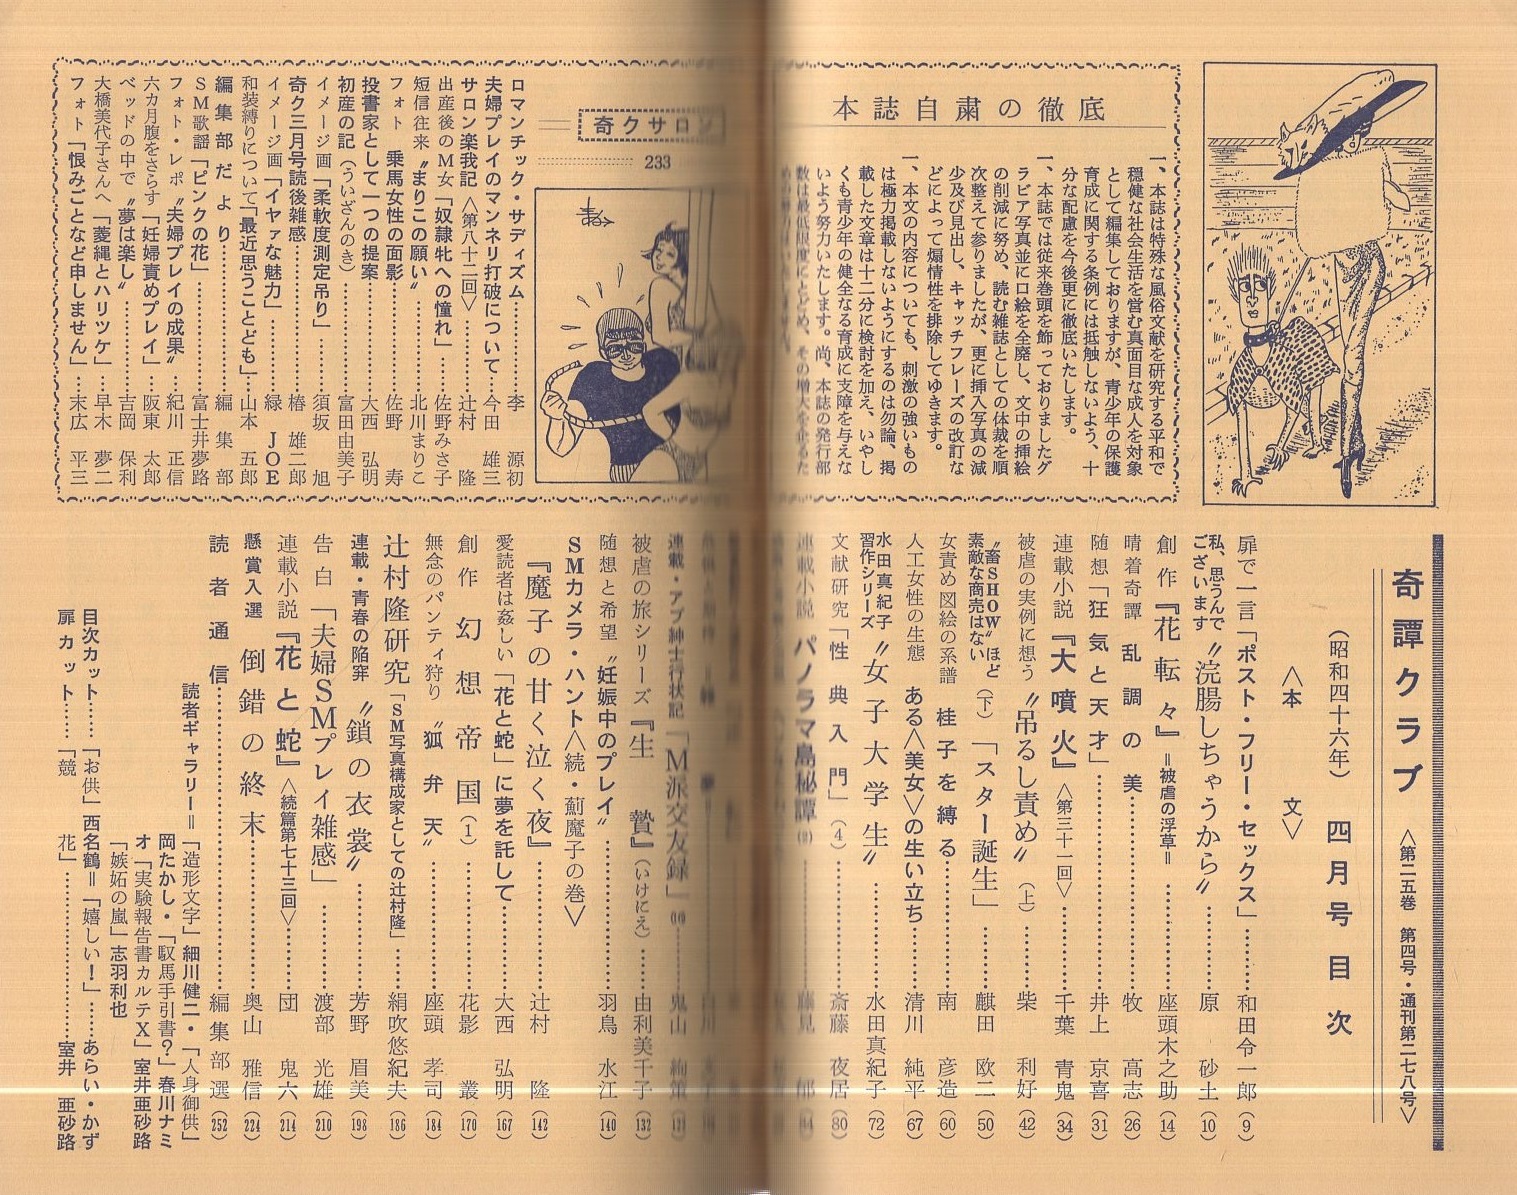 奇譚クラブ 〈第二五巻 第四号・通刊第二七八号〉
(昭和四十六年) 四月号目次
〈本文〉
扉で一言「ポスト・フリー・セックス」…………和田令一郎(9)
私、思うんでございます〝浣腸しちゃうから〟…………原 砂土(10)
創作『花転々』=被虐の浮草=…………座頭木之助(14)
晴着奇譚 乱調の美…………牧 高志(26)
随想「狂気と天才」…………井上 京喜(31)
連載小説『大噴火』〈第三十一回〉…………千葉 青鬼(34)
被虐の実例に想う〝吊るし責め〟(上)…………柴 利好(42)
〝畜SHOW〟ほど素敵な商売はない(下)「スター誕生」…………麒田 欧二(50)
女責め図絵の系譜 桂子を縛る…………南 彦造(60)
人工女性の生態 ある〈美女〉の生い立ち…………清川 純平(67)
水田真紀子習作シリーズ〝女子大学生〟…………水田真紀子(72)
文献研究「性典入門」(4)…………斎藤 夜居(80)
連載小説 パノラマ島秘譚…………藤見 郁(84)
連載・アブ紳士行状記「M派交友録」…………鬼山 絢策
被虐の旅シリーズ『生贄』(いけにえ)…………由利美千子(132)
随想と希望〝妊娠中のプレイ〟…………羽鳥 水江(140)
SMカメラ・ハント〈続・薊魔子の巻〉
『魔子の甘く泣く夜』…………辻村 隆(142)
愛読者は姦しい「花と蛇」に夢を託して…………大西 弘明(167)
創作 幻想帝国(1)…………花影 叢(170)
無念のパンティ狩り〝狐弁天〟…………座頭 孝司(184)
辻村隆研究「SM写真構成家としての辻村隆」…………絹吹悠紀夫(186)
連載・青春の陥穽〝鎖の衣裳〟…………芳野 眉美(198)
告白「夫婦SMプレイ雑感」…………渡部 光雄(210)
連載小説『花と蛇』〈続篇第七十三回〉…………団 鬼六(214)
懸賞入選 倒錯の終末…………奥山 雅信(224)
読者通信…………編集部選(252)
読者ギャラリー=「造形文字」細川健二・「人身御供」
岡たかし・「馭馬手引書?」春川ナミ
オ「実験報告書カルテX」室井亜砂路
「嫉妬の嵐」志羽利也
目次カット……「お供」西名鶴=「嬉しい!」……あらい・かず
扉カット……「競花」…………室井 亜砂路
本誌自粛の徹底
一、本誌は特殊な風俗文献を研究する平和で
穏健な社会生活を営む真面目な成人を対象
として編集しておりますが、青少年の保護
育成に関する条例には抵触しないよう、十
分な配慮を今後更に徹底いたします。
一、本誌では従来巻頭を飾っておりましたグ
ラビア写真並に口絵を全廃し、文中の挿絵
の削減に努め、読む雑誌としての体裁を順
次整えて参りましたが、更に挿入写真の減
少及び見出し、キャッチフレーズの改訂な
どによって煽情性を排除してゆきます。
一、本文の内容についても、刺激の強いもの
は極力掲載しないようにするのは勿論、掲
載した文章は十二分に検討を加え、いやし
くも青少年の健全なる育成に支障を与えな
いよう努力いたします。尚、本誌の発行部
数は最低限度にとどめ、その増大を企るた
奇クサロン
233
ロマンチック・サディズム…………李 源初
夫婦プレイのマンネリ打破について…………今田 雄三
サロン楽我記〈第八十二回〉…………辻村 隆
出産後のM女「奴隷牝への憧れ」…………佐野みさ子
短信往来〝まりこの願い〟…………北川まりこ
フォト 乗馬女性の面影…………佐野 寿
投書家として一つの提案…………大西 弘明
初産の記(ういざんのき)…………富田由美子
イメージ画「柔軟度測定吊り」…………須坂 旭
奇ク三月号読後雑感…………椿 雄二郎
イメージ画「イヤァな魅力」…………緑 JOE
和装縛りについて「最近思うことども」…………山本 五郎
編集部だより…………編集部
SM歌謡「ピンクの花」…………富士井夢路
フォト・レポ〝夫婦プレイの成果〟…………紀川 正信
六カ月腹をさらす「妊婦責めプレイ」…………阪東 太郎
ベッドの中で〝夢は楽し〟…………吉岡 保利
大橋美代子さんへ「菱縄とハリツケ」…………早木 夢二
フォト「恨みごとなど申しません」…………末広 平三